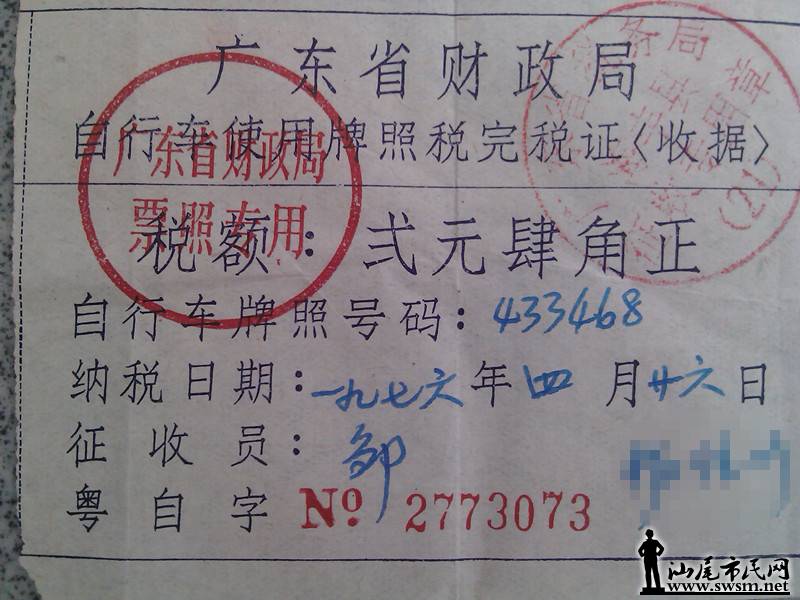 广东省财政局
自行车使用牌照税完税证〈收据〉
广东省财政局
票照专用
税额：弍元肆角正
自行车牌照号码：433468
纳税日期：一九七六年四月廿六日
征收员：邹
粤自字 № 2773073
务局
(21)
汕尾市民网
www.swsm.net